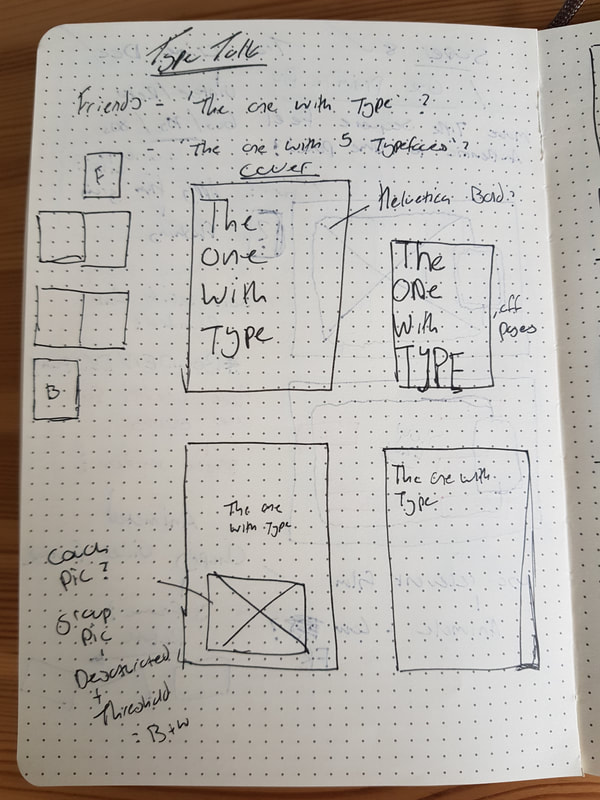 Type Talk
Friends - 'The one with Type' ?
- 'The one with 5 Typefaces'?
cover
F
The
one
with
Type
Helvetica Bold?
The
one
with
TYPE
off
pages
B
The one
with Type
The one with
Type
Couch
pic?
Group
pic
+
Desaturated
+
Threshold
= B+W